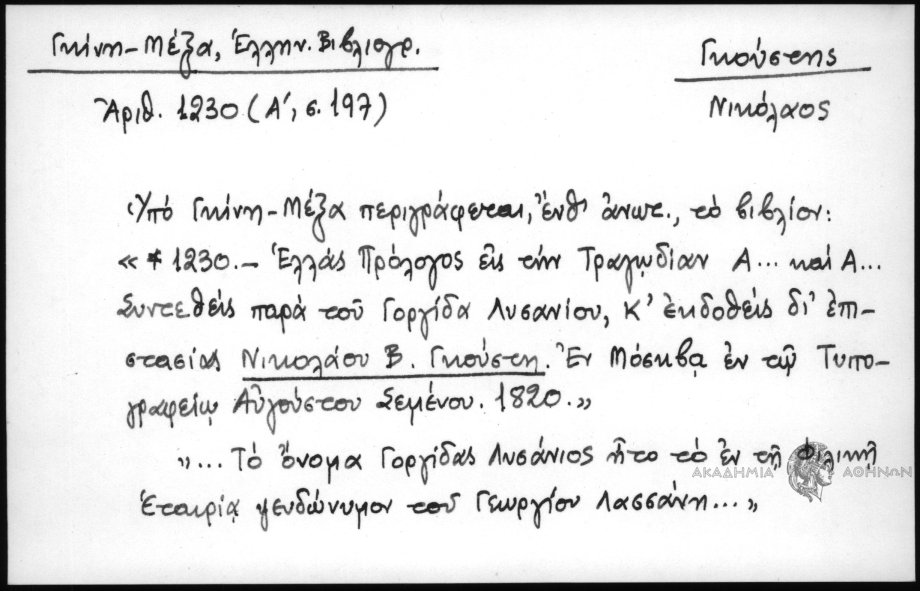 Γκίνη-Μέξα, Ἑλλην. Βιβλιογρ.
Γκούστης
Ἀριθ. 1230 (Α', σ. 197)
Νικόλαος
Ὑπό Γκίνη-Μέξα περιγράφεται, ἔνθ' ἀνωτ., τὸ βιβλίον:
«*1230.— Ἑλλάς Πρόλογος εἰς τήν Τραγῳδίαν Α... καί Α...
Συντεθείς παρά τοῦ Γοργίδα Λυσανίου, Κ' ἐκδοθείς δι' ἐπι-
στασίας Νικολάου Β. Γκούστη. Ἐν Μόσκβᾳ ἐν τῷ Τυπο-
γραφείῳ Αὐγούστου Σεμένου. 1820.»
»... Τό ὄνομα Γοργίδας Λυσάνιος ἦτο τό ἐν τῇ Φιλικῇ
Ἑταιρίᾳ ψευδώνυμον τοῦ Γεωργίου Λασσάνη...»
ΑΚΑΔΗΜΙΑ ΑΘΗΝΩΝ